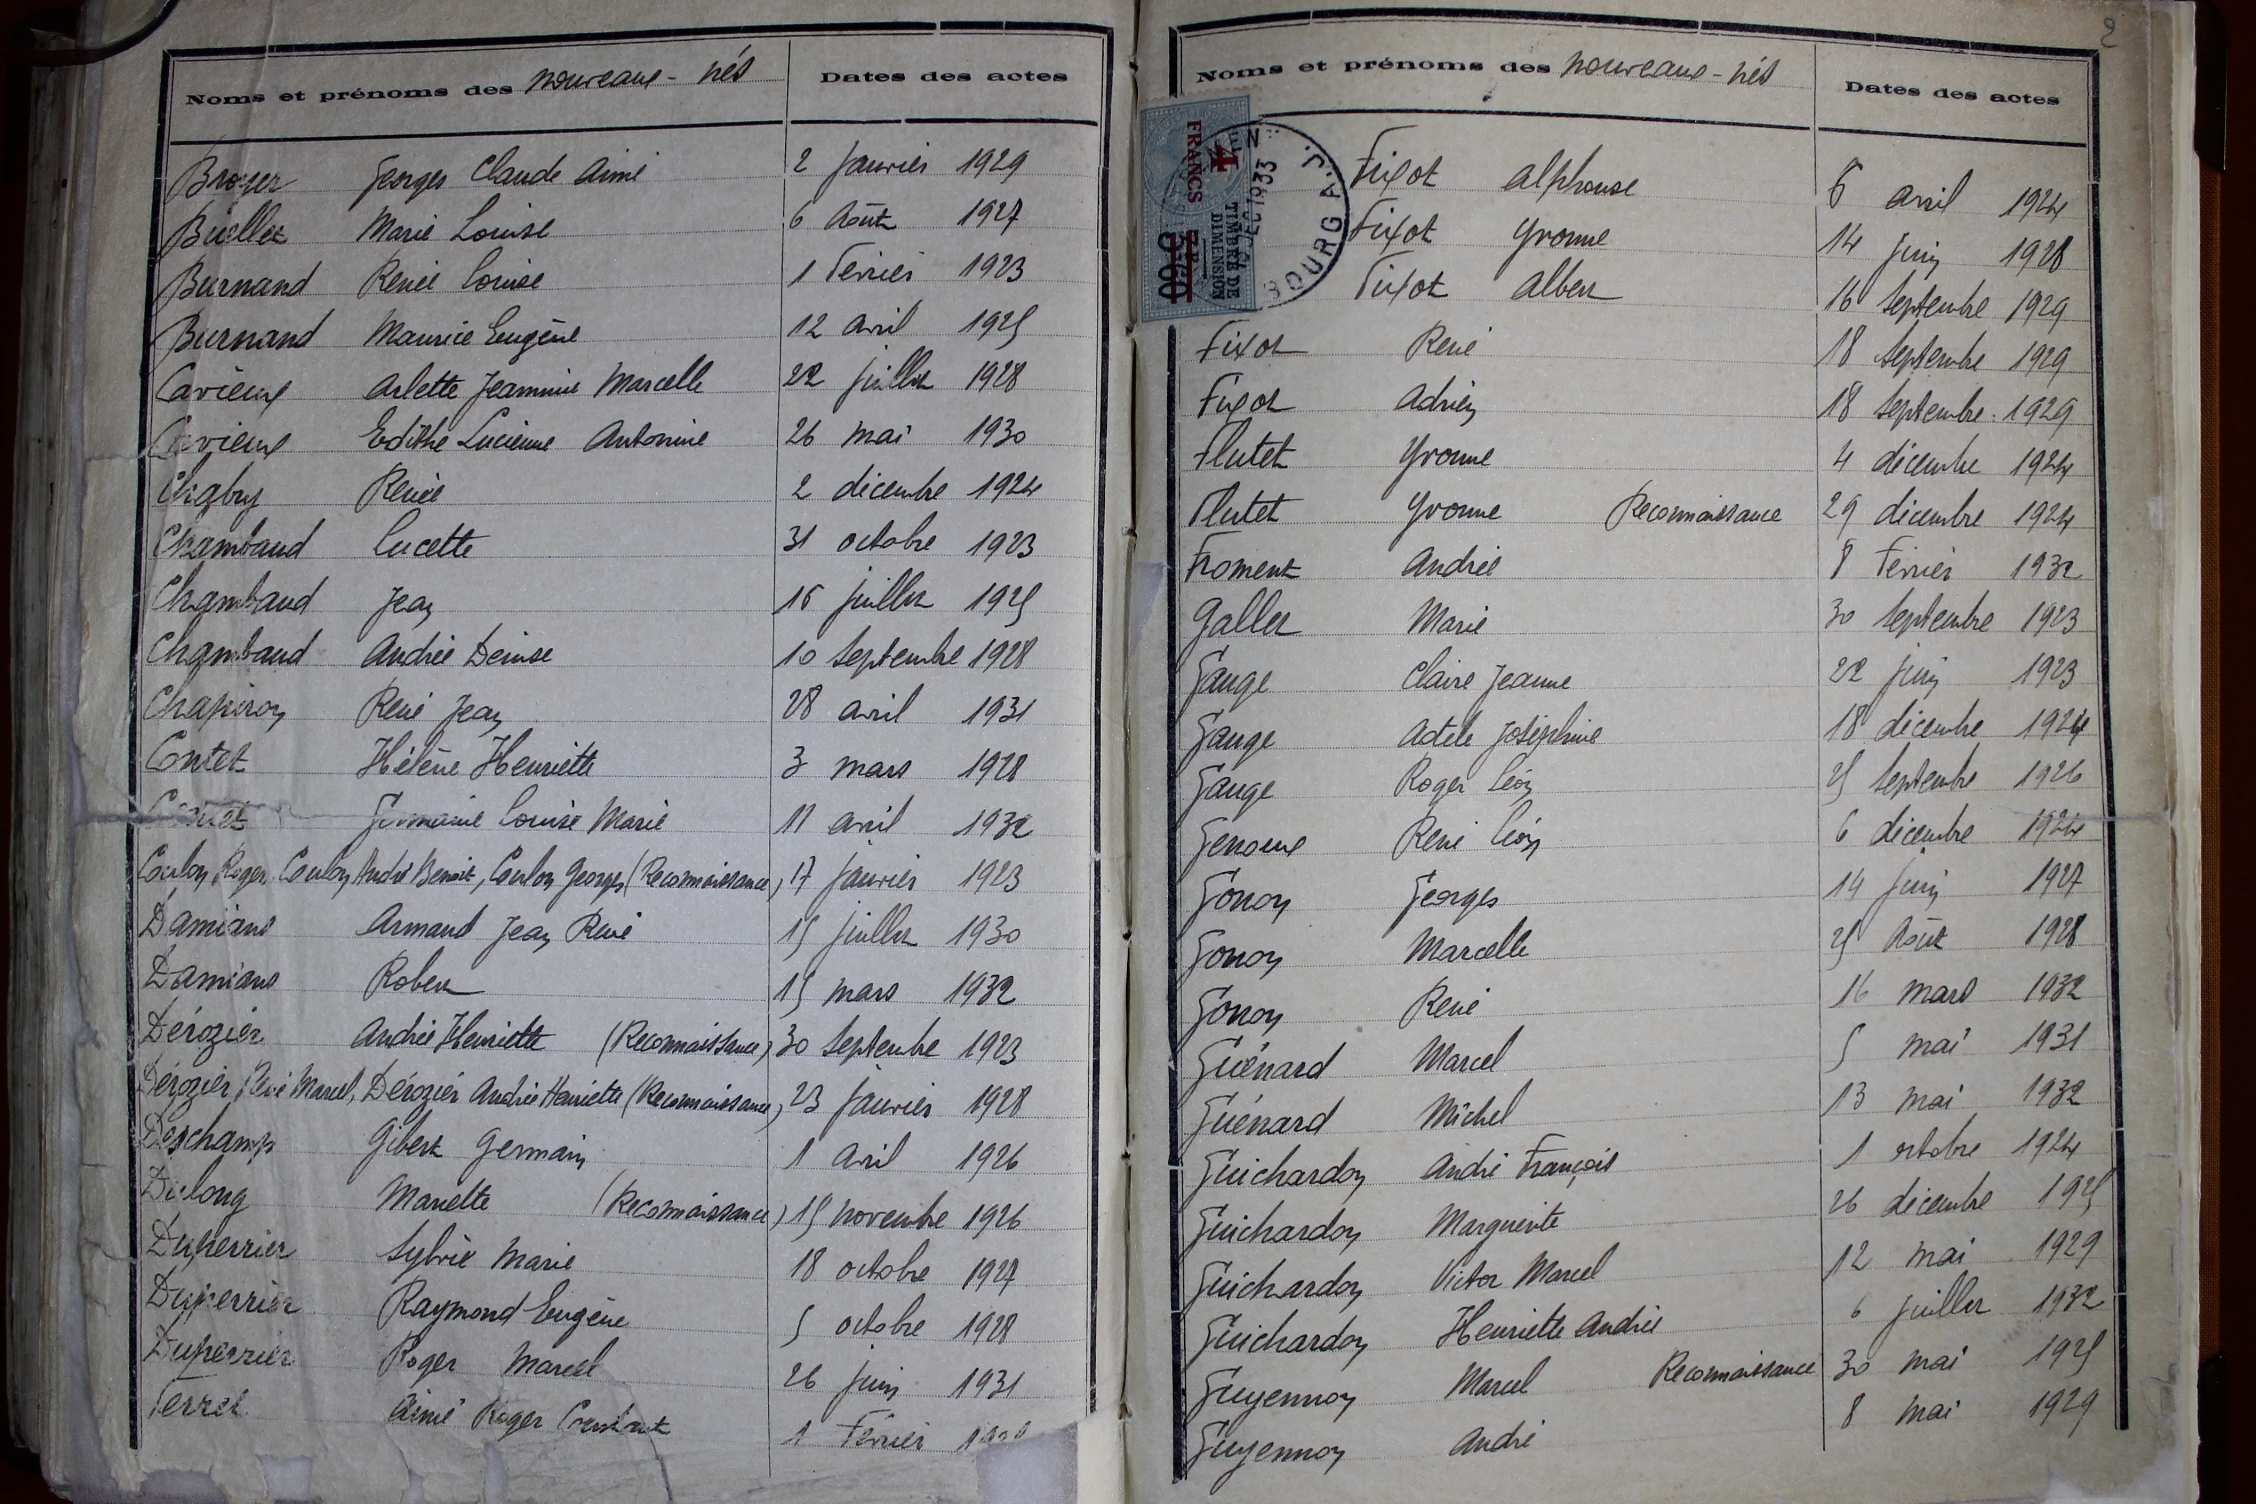 Noms et prénoms des nouveaux-nés Dates des actes
Broyer Georges Claude Aimé 2 Janvier 1929
Buellet Marie Louise 6 Août 1927
Burnand Renée Louise 1 Février 1923
Burnand Maurice Eugène 12 avril 1925
Cavieux Arlette Jeannine Marcelle 22 juillet 1928
Cavieux Edithe Lucienne Antonine 26 mai 1930
Chabry Renée 2 décembre 1924
Chambaud Lucette 31 octobre 1923
Chambaud Jean 16 juillet 1925
Chambaud Andrée Denise 10 Septembre 1928
Chapiron René Jean 28 avril 1931
Contet Hélène Henriette 3 mars 1928
Germaine Louise Marie 11 avril 1932
Coulon Roger, Coulon André Benoit, Coulon Georges (Reconnaissance) 17 janvier 1923
Damians Armand Jean René 15 juillet 1930
Damians Robert 15 mars 1932
Dérozier Andrée Henriette (Reconnaissance) 30 Septembre 1923
Dérozier René Marcel, Dérozier Andrée Henriette (Reconnaissance) 23 janvier 1928
Deschamp Gibert Germain 1 avril 1926
Dulong Mariette (Reconnaissance) 15 novembre 1926
Duperrier Sylvie Marie 18 octobre 1927
Duperrier Raymond Eugène 5 octobre 1928
Duperrier Roger Marcel 26 juin 1931
Ferret Aimé Roger Constant 1 Février
2
Noms et prénoms des nouveaux-nés Dates des actes
4 FRANCS
TIMBRE DE DIMENSION
3F60
DEC 1933
BOURG A.J.
Fixot Alphonse 6 avril 1924
Fixot Yvonne 14 juin 1928
Fixot Albert 16 Septembre 1929
Fixot René 18 Septembre 1929
Fixot Adrien 18 Septembre 1929
Flutet Yvonne 4 décembre 1924
Flutet Yvonne Reconnaissance 29 décembre 1924
Froment Andrée 8 Février 1932
Gallet Marie 30 Septembre 1923
Gauge Claire Jeanne 22 juin 1923
Gauge Adèle Joséphine 18 décembre 1924
Gauge Roger Léon 25 Septembre 1926
Genoux René Léon 6 décembre 1924
Gonon Georges 14 juin 1927
Gonon Marcelle 25 Août 1928
Gonon René 16 mars 1932
Guénard Marcel 5 mai 1931
Guénard Michel 13 mai 1932
Guichardon André François 1 octobre 1924
Guichardon Marguerite 26 décembre 1925
Guichardon Victor Marcel 12 mai 1929
Guichardon Henriette Andrée 6 juillet 1932
Guyennon Marcel Reconnaissance 30 mai 1925
Guyennon André 8 mai 1929